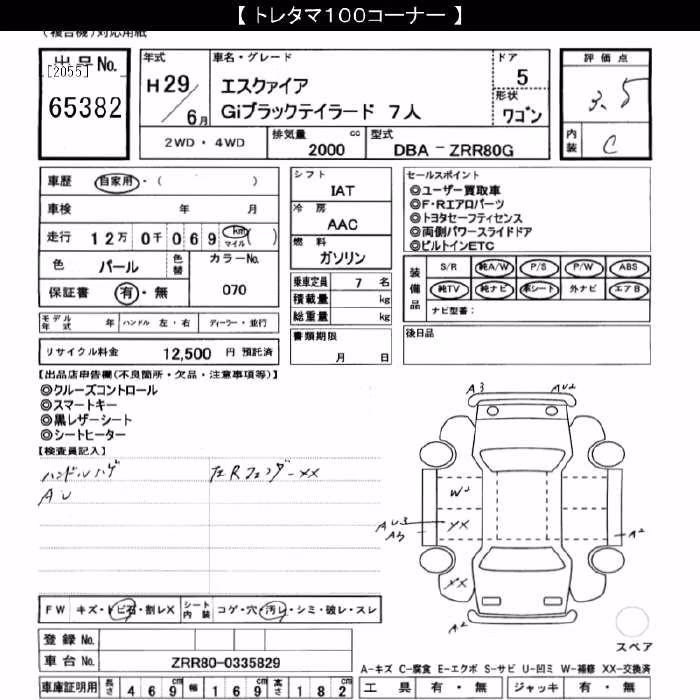 【 トレタマ100コーナー 】
(複合機)対応用紙
出品No.
[2055]
65382
年式
H29/6月
車名・グレード
エスクァイア
Giブラックテイラード 7人
ドア
5
形状
ワゴン
評価点
3.5
内装
C
2WD・4WD
排気量 cc
2000
型式
DBA - ZRR80G
車歴 自家用・( )
車検 年 月
走行 12万0千069 km マイル ( )
色 パール 色替
カラーNo.
070
保証書 有・無
シフト
IAT
冷房
AAC
燃料
ガソリン
乗車定員 7 名
積載量 kg
総重量 kg
セールスポイント
◎ユーザー買取車
◎F・Rエアロパーツ
◎トヨタセーフティセンス
◎両側パワースライドドア
◎ビルトインETC
装備品
S/R 純A/W P/S P/W ABS
純TV 純ナビ 革シート 外ナビ エアB
ナビ型番:
モデル年式 年 ハンドル 左・右 ディーラー・並行
リサイクル料金 12,500 円 預託済
書類期限
月 日
後日品
【出品店申告欄(不良箇所・欠品・注意事項等)】
◎クルーズコントロール
◎スマートキー
◎黒レザーシート
◎シートヒーター
【検査員記入】
ハンドルハゲ
AU
左Rフェンダー XX
A3
AU2
W2
AU3
A3
XX
A2
XX
A2
スペア
FW キズ・トビ石・割レX
シート内装 コゲ・穴・汚レ・シミ・破レ・スレ
登録No.
車台No. ZRR80-0335829
車庫証明用 長さ 469cm 幅 169cm 高さ 182cm
A-キズ C-腐食 E-エクボ S-サビ U-凹ミ W-補修 XX-交換済
工具 有・無 ジャッキ 有・無